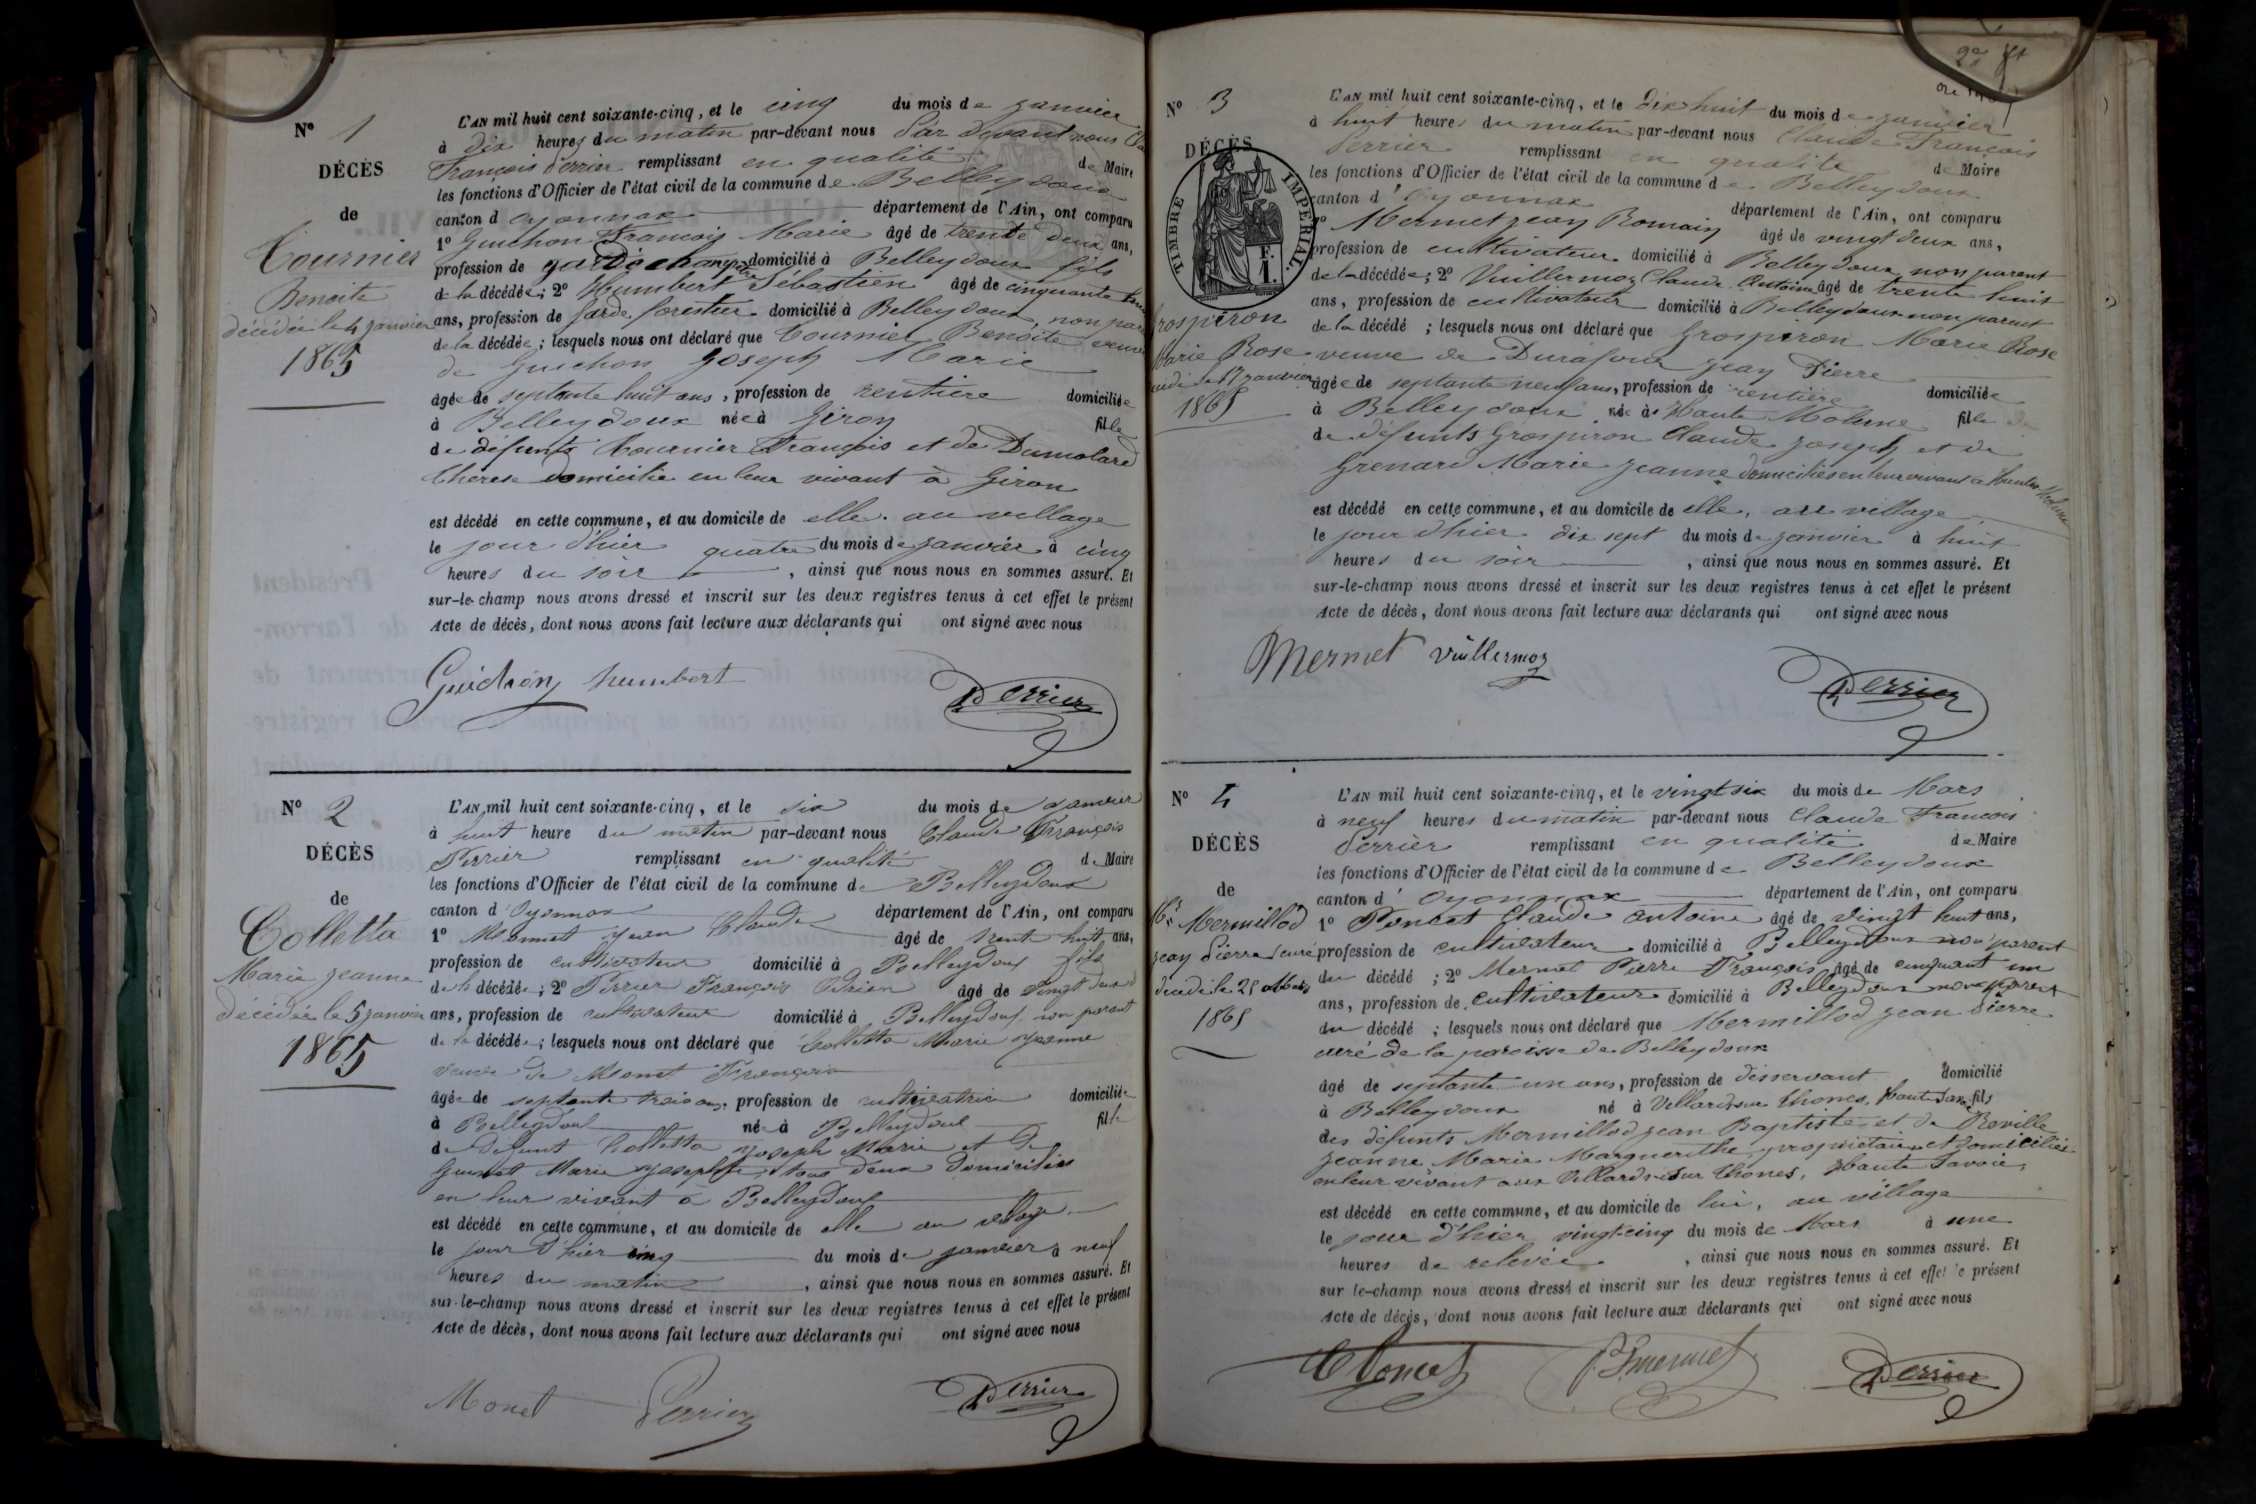 N° 1
DÉCÈS
de
Tournier
Benoite
décédée le 4 janvier
1865
L'AN mil huit cent soixante-cinq, et le cinq du mois de janvier
à dix heures du matin par-devant nous Par devant nous
François Perrier remplissant en qualité de Maire
les fonctions d'Officier de l'état civil de la commune de Belleydoux
canton d'oyonnax département de l'Ain, ont comparu
1° Guichon François Marie âgé de trente deux ans,
profession de garde champêtre domicilié à Belleydoux fils
de la décédée; 2° Humbert Sébastien âgé de cinquante
ans, profession de garde forestier domicilié à Belleydoux, non
de la décédée; lesquels nous ont déclaré que Tournier Benoite veuve
de Guichon Joseph Marie
âgée de septante huit ans, profession de rentière domiciliée
à Belleydoux née à Giron fille
de défunts Tournier François et de Dumolard
Thérèse domicilié en leur vivant à Giron
est décédé en cette commune, et au domicile de elle. au village
le jour d'hier quatre du mois de janvier à cinq
heures du soir, ainsi que nous nous en sommes assuré. Et
sur-le-champ nous avons dressé et inscrit sur les deux registres tenus à cet effet le présent
Acte de décès, dont nous avons fait lecture aux déclarants qui ont signé avec nous
Guichon humbert Perrier
N° 2
DÉCÈS
de
Colletta
Marie Jeanne
décédée le 5 janvier
1865
L'AN mil huit cent soixante-cinq, et le six du mois de janvier
à huit heure du matin par-devant nous Claude François
Perrier remplissant en qualité de Maire
les fonctions d'Officier de l'état civil de la commune de Belleydoux
canton d'Oyonnax département de l'Ain, ont comparu
1° Monnet Jean Claude âgé de trent huit ans,
profession de cultivateur domicilié à Belleydoux fils
de la décédée; 2° Perrier François âgé de vingt deux
ans, profession de cultivateur domicilié à Belleydoux non parent
de la décédée; lesquels nous ont déclaré que Colletta Marie Jeanne
veuve de Monet François
âgée de septante trois ans, profession de cultivatrice domiciliée
à Belleydoux née à Belleydoux fille
de defunt Colletta Joseph Marie et de
Marie Josephte tous deux domiciliés
en leur vivant à Belleydoux
est décédé en cette commune, et au domicile de elle au village
le jour d'hier cinq du mois de janvier à neuf
heures du matin, ainsi que nous nous en sommes assuré. Et
sur-le-champ nous avons dressé et inscrit sur les deux registres tenus à cet effet le présent
Acte de décès, dont nous avons fait lecture aux déclarants qui ont signé avec nous
Monet Perrier Perrier
N° 3
DÉCÈS
TIMBRE IMPERIAL
1 F.
Grospiron
Marie Rose
17 janvier
1865
L'AN mil huit cent soixante-cinq, et le dix huit du mois de janvier
à huit heures du matin par-devant nous Claude François
Perrier remplissant en qualité de Maire
les fonctions d'Officier de l'état civil de la commune de Belleydoux
canton d'Oyonnax département de l'Ain, ont comparu
1° Mermet Jean Romain âgé de vingt deux ans,
profession de cultivateur domicilié à Belleydoux non parent
de la décédée; 2° Vuillermoz Claude Antoine âgé de trente huit
ans, profession de cultivateur domicilié à Belleydoux non parent
de la décédé; lesquels nous ont déclaré que Grospiron Marie Rose
veuve de Durafour Jean Pierre
âgée de septante neuf ans, profession de rentière domiciliée
à Belleydoux née à Haute Molune fille de
de défunts Grospiron Claude Joseph et de
Grenard Marie Jeanne domiciliés en leur vivant à Haute Molune
est décédé en cette commune, et au domicile de elle, au village
le jour d'hier dix sept du mois de janvier à huit
heures du soir, ainsi que nous nous en sommes assuré. Et
sur-le-champ nous avons dressé et inscrit sur les deux registres tenus à cet effet le présent
Acte de décès, dont nous avons fait lecture aux déclarants qui ont signé avec nous
Mermet Vuillermoz Perrier
N° 4
DÉCÈS
de
Mermillod
Jean Pierre curé
décédé le 25 Mars
1865
L'AN mil huit cent soixante-cinq, et le vingt six du mois de Mars
à neuf heures du matin par-devant nous Claude François
Perrier remplissant en qualité de Maire
les fonctions d'Officier de l'état civil de la commune de Belleydoux
canton d'oyonnax département de l'Ain, ont comparu
1° Poncet Claude Antoine âgé de vingt huit ans,
profession de cultivateur domicilié à Belleydoux non parent
du décédé; 2° Mermet Pierre François âgé de cinquant un
ans, profession de cultivateur domicilié à Belleydoux non parent
du décédé; lesquels nous ont déclaré que Mermillod Jean Pierre
curé de la paroisse de Belleydoux
âgé de septante un ans, profession de desservant domicilié
à Belleydoux né à Villards sur Thones, haute Savoie fils
des défunts Mermillod Jean Baptiste et de Reville
Jeanne Marie Marguerithe, propriétaire et domiciliés
en leur vivant aux Villards sur Thones, Haute Savoie,
est décédé en cette commune, et au domicile de lui, au village
le jour d'hier vingt-cinq du mois de Mars à une
heures de relevée, ainsi que nous nous en sommes assuré. Et
sur le-champ nous avons dressé et inscrit sur les deux registres tenus à cet effet le présent
Acte de décès, dont nous avons fait lecture aux déclarants qui ont signé avec nous
Poncet Mermet Perrier